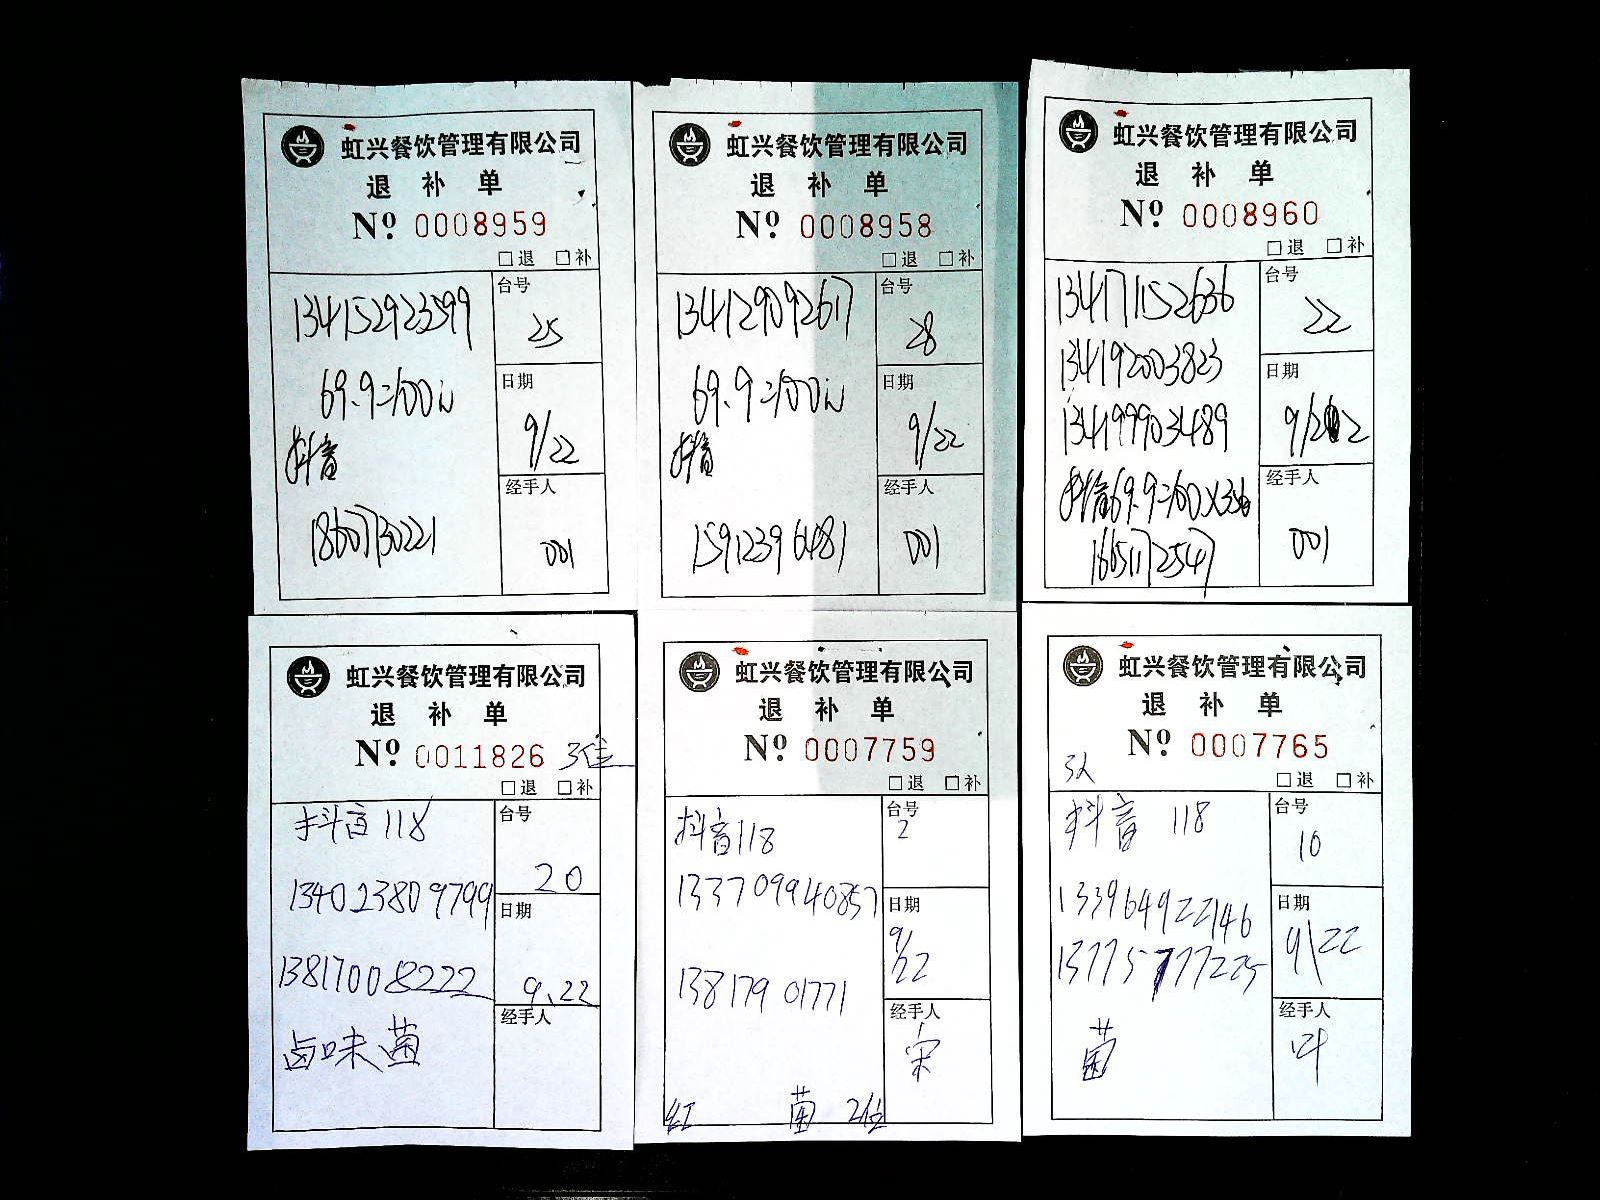 虹兴餐饮管理有限公司
退 补 单
Nº 0008959
□退 □补
134152923599
台号
25
69.9=100元
日期
9/22
抖音
经手人
18607730221
001
虹兴餐饮管理有限公司
退 补 单
Nº 0008958
□退 □补
134129092617
台号
28
69.9=100元
日期
9/22
抖音
经手人
15912396481
001
虹兴餐饮管理有限公司
退 补 单
Nº 0008960
□退 □补
134171152636
台号
22
134192003823
日期
134199903489
9/22
抖音69.9=100X3
经手人
16651172547
001
虹兴餐饮管理有限公司
退 补 单
Nº 0011826 3位
□退 □补
抖音118
台号
20
134023809799
日期
13817008222
9.22
经手人
卤味 菌
虹兴餐饮管理有限公司
退 补 单
Nº 0007759
□退 □补
抖音118
台号
2
133709940857
日期
9/22
13817901771
经手人
宋
红 菌 2位
虹兴餐饮管理有限公司
退 补 单
Nº 0007765
3人
□退 □补
抖音 118
台号
10
133964922146
日期
9\22
经手人
叶
菌